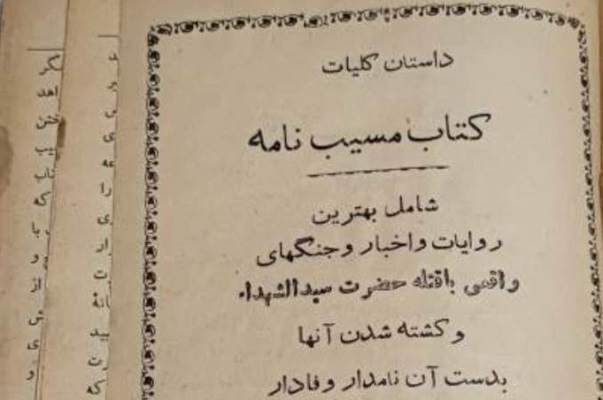 داستان کلیات
کتاب مسیب نامه
شامل بهترین
روایات و اخبار و جنگهای
واقعی باقتله حضرت سیدالشهداء
و کشته شدن آنها
بدست آن نامدار وفادار